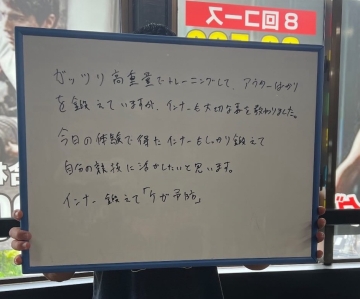 8回コース
ガッツリ高重量でトレーニングして、アウターばかり
を鍛えていますが、インナーも大切な事を教わりました。
今日の体験で得たインナーもしっかり鍛えて
自分の競技に活かしたいと思います。
インナー鍛えて「ケガ予防」